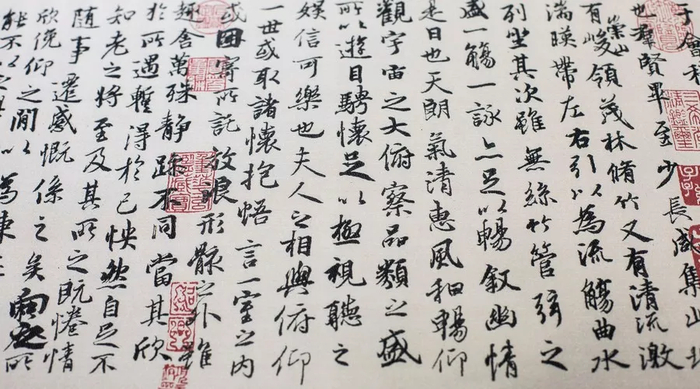 于會
也羣賢畢至少長咸集此
有崇山峻領茂林脩竹又有清流激
湍暎帶左右引以為流觴曲水
列坐其次雖無絲竹管弦之
盛一觴一詠亦足以暢叙幽情
是日也天朗氣清惠風和暢仰
觀宇宙之大俯察品類之盛
所以遊目騁懷足以極視聽之
娛信可樂也夫人之相與俯仰
一世或取諸懷抱悟言一室之內
或因寄所託放浪形骸之外雖
趣舍萬殊靜躁不同當其欣
於所遇暫得於己怏然自足不
知老之將至及其所之既惓情
隨事遷感慨係之矣向之所
欣俛仰之閒以為陳
能不以之